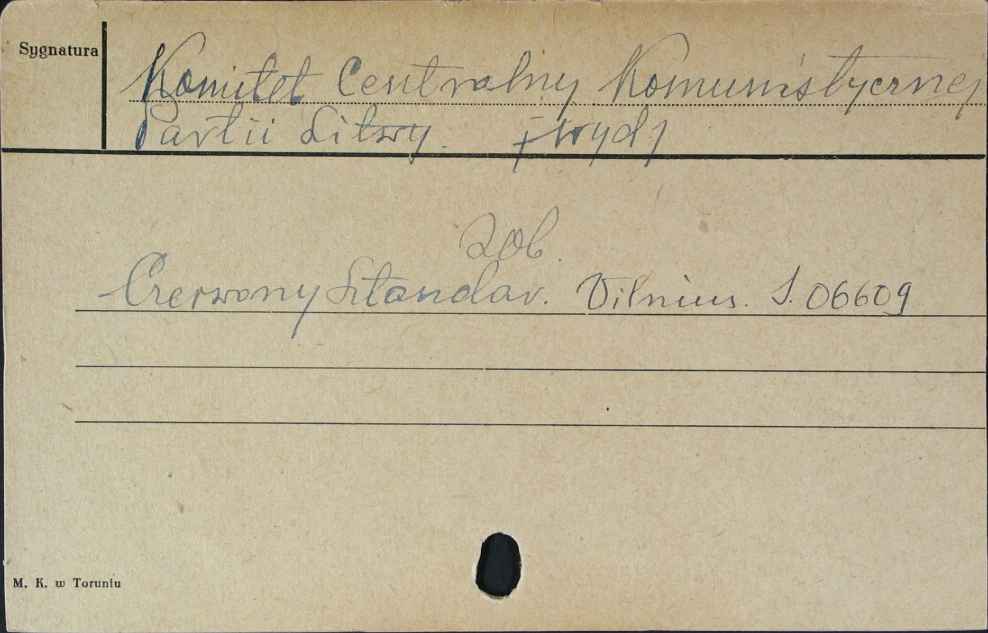 Sygnatura
Komitet Centralny Komunistycznej
Partii Litwy. [wyd]
zob.
Czerwony Sztandar. Vilnius. S. 06609
M. K. w Toruniu